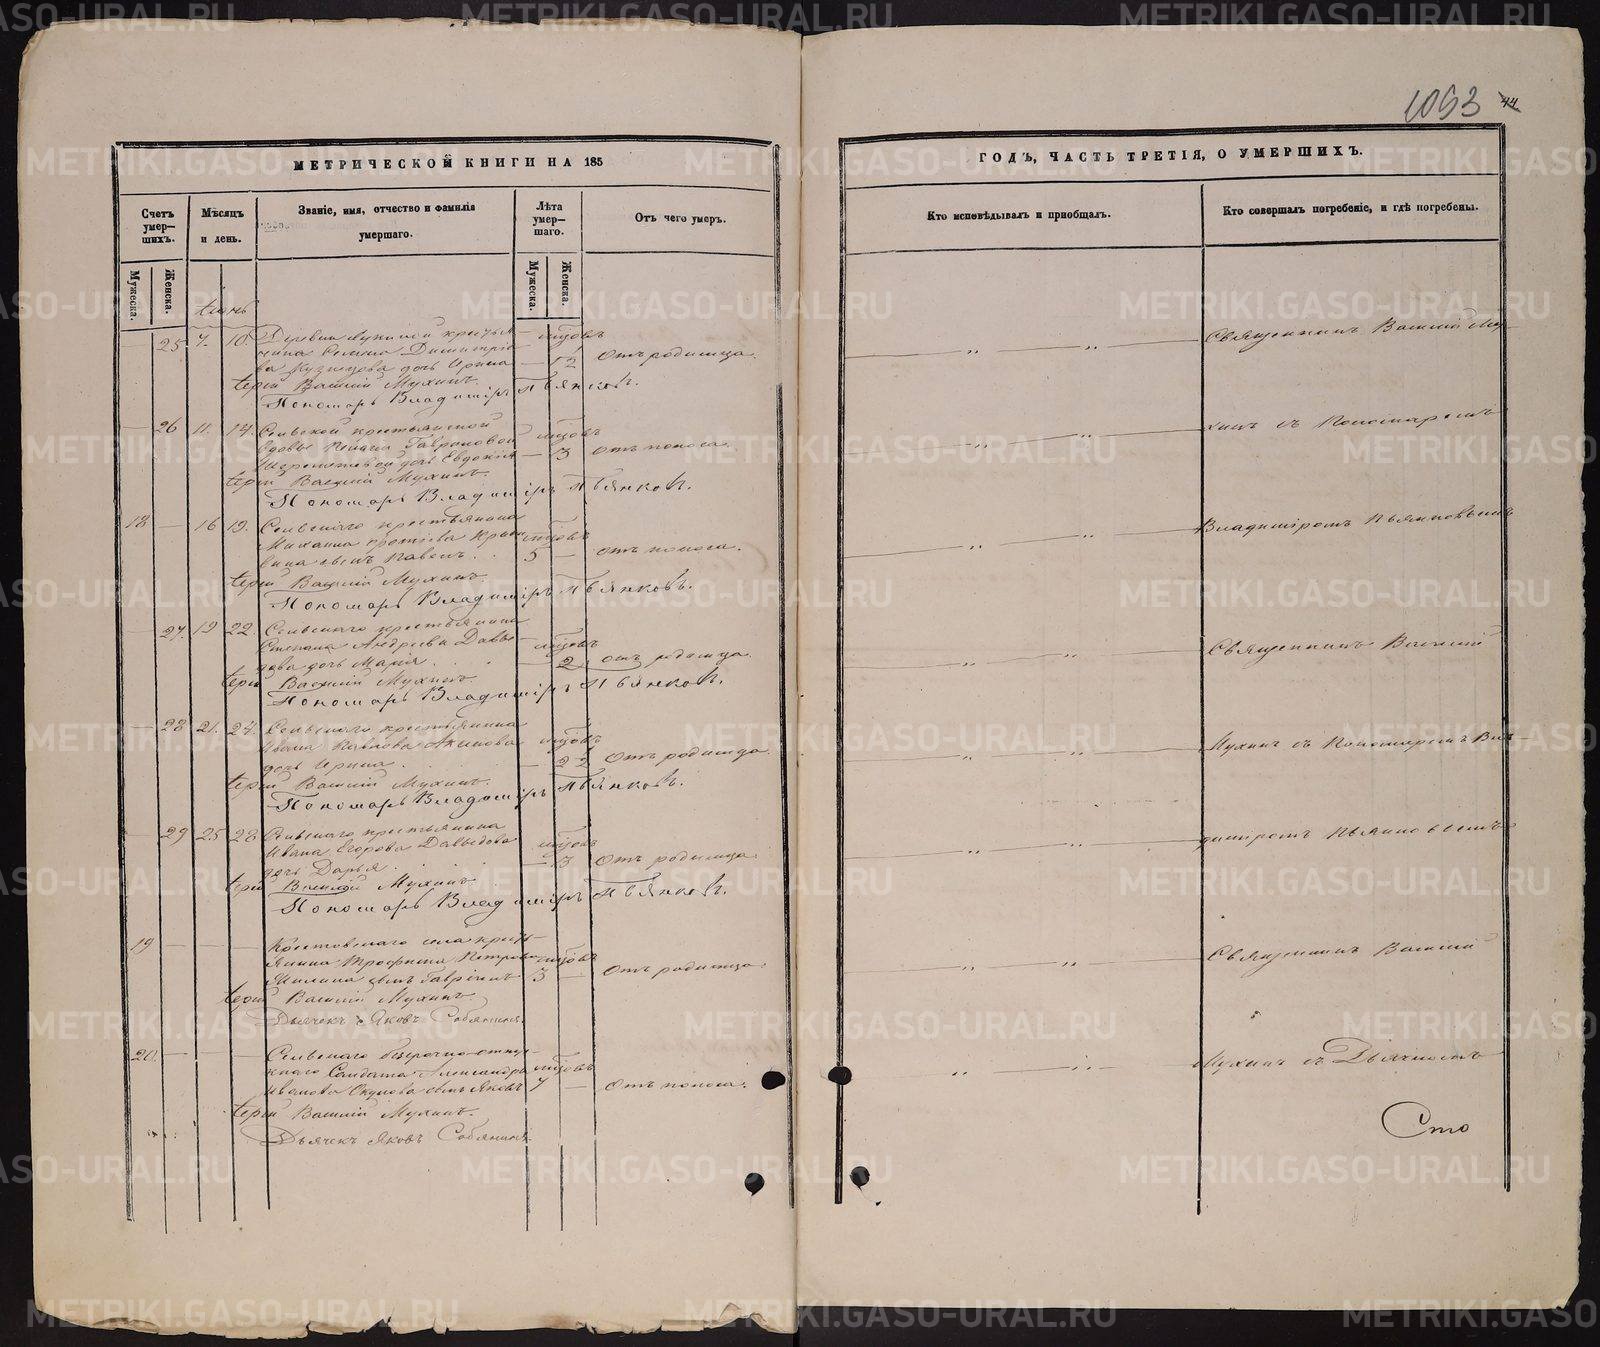 1053 44
МЕТРИЧЕСКОЙ КНИГИ НА 185
ГОДЪ, ЧАСТЬ ТРЕТІЯ, О УМЕРШИХЪ.
Счетъ умер-шихъ.
Мѣсяцъ и день.
Званіе, имя, отчество и фамилія умершаго.
Лѣта умер-шаго.
Отъ чего умеръ.
Кто исповѣдывалъ и пріобщалъ.
Кто совершалъ погребеніе, и гдѣ погребены.
Мужеска.
Женска.
Мужеска.
Женска.
25 7. 10.
дочь Ирина 12 Отъ родимца.
Священникъ Василій Му-
Іерей Василій Мухинъ.
Пономарь Владиміръ Пьянковъ.
26 11. 14. Сельской крестьянской
дочь Евдокія 3 отъ поноса.
хинъ съ Пономаремъ
Іерей Василій Мухинъ.
Пономарь Владиміръ Пьянковъ.
18 16 19. Сельскаго крестьянина
сынъ Павелъ. 5 отъ поноса.
Владиміромъ Пьянковымъ
Іерей Василій Мухинъ.
Пономарь Владиміръ Пьянковъ.
27. 19 22. Сельскаго крестьянина
Степана Андреева Давы-
дова дочь Марія 2 отъ родимца.
Священникъ Василій
Іерей Василій Мухинъ.
Пономарь Владиміръ Пьянковъ.
28 21. 24. Сельскаго крестьянина
Ивана Павлова Акинова
дочь Ирина. 22 Отъ родимца
Мухинъ съ Пономаремъ Вла-
Іерей Василій Мухинъ.
Пономарь Владиміръ Пьянковъ.
29 25 28 Сельскаго крестьянина
Ивана Егорова Давыдова
дочь Дарья 13 Отъ родимца.
диміромъ Пьянковымъ
Іерей Василій Мухинъ.
Пономарь Владиміръ Пьянковъ.
19 Крестовскаго села кресть-
янина Трофима Петрова
сынъ Гавріилъ 3 Отъ родимца.
Священникъ Василій
Іерей Василій Мухинъ.
Дьячекъ Яковъ Собянинъ.
20. Сельскаго безсрочно-отпу-
скнаго Солдата Александра
Иванова Окулова сынъ Яковъ 7 Отъ поноса.
Мухинъ съ Дьячкомъ
Іерей Василій Мухинъ.
Дьячекъ Яковъ Собянинъ.
METRIKI.GASO-URAL.RU